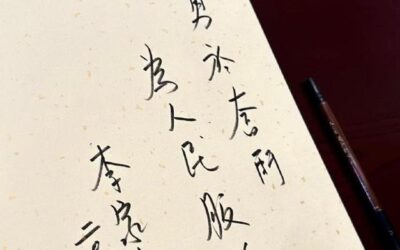 勇於奮鬥
為人民服
李家
二